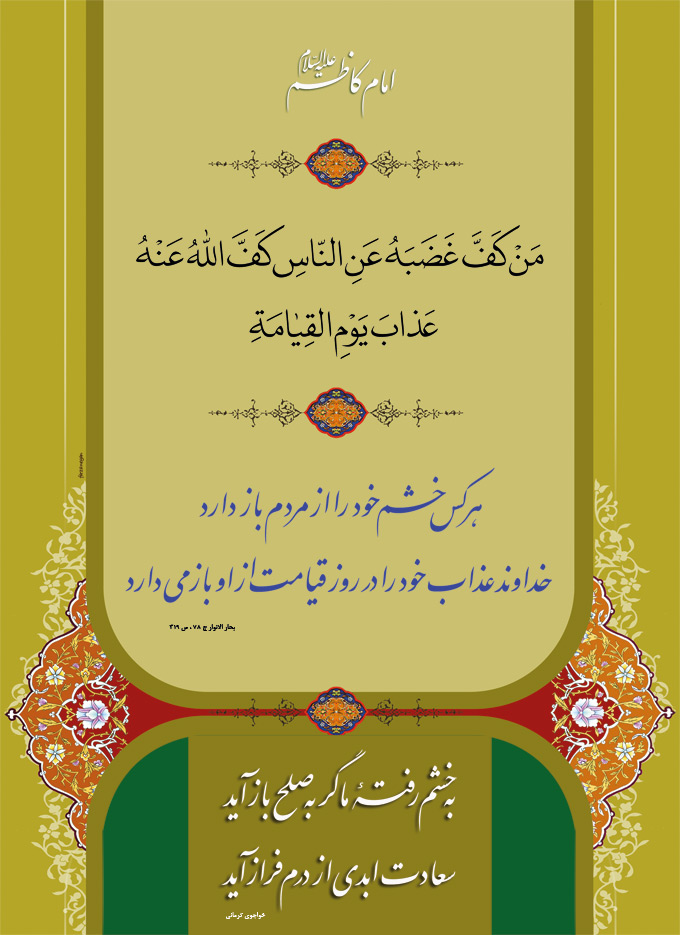 امام کاظم علیه‌السلام
مَنْ کَفَّ غَضَبَهُ عَنِ النّاسِ کَفَّ اللهُ عَنْهُ
عَذابَ یَوْمِ القِیٰامَةِ
هر کس خشم خود را از مردم باز دارد
خداوند عذاب خود را در روز قیامت از او باز می دارد
بحار الانوار ج ۷۸ ، ص ۳۱۹
به خشم رفتهٔ ما گر به صلح باز آید
سعادت ابدی از درم فراز آید
خواجوی کرمانی